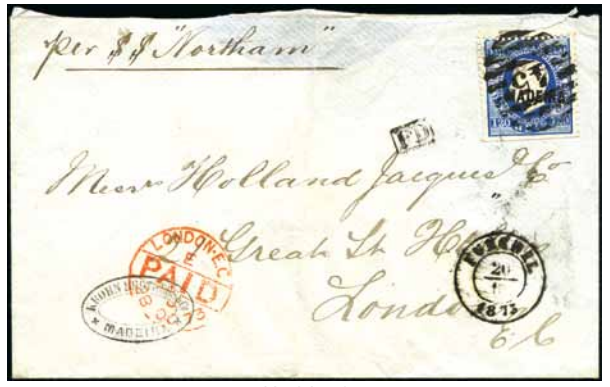 per SS "Northam"
MADEIRA
120
PD
Messrs Holland Jacques & Co
Great St H
London
E C
LONDON·E.C
PAID
73
KROHN BROTHERS & CO
* MADEIRA *
FUNCHAL
20
1873